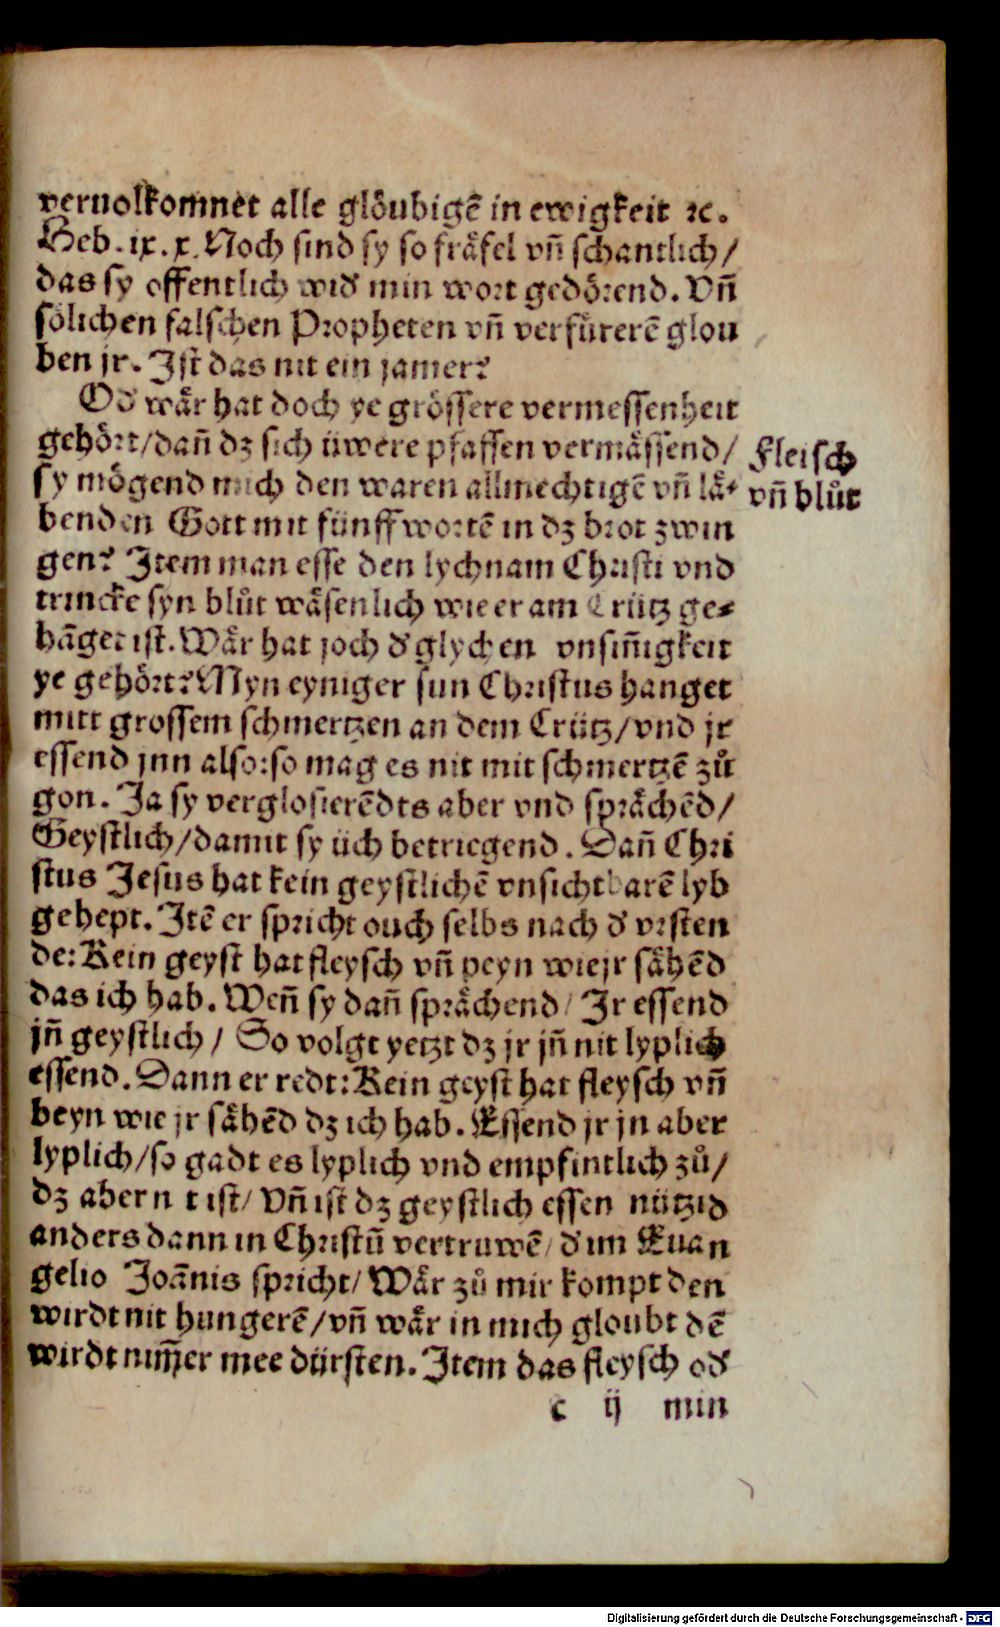 vervolkomnet alle glöubigē in ewigkeit ꝛc.
Heb. ix. x. Noch sind sy so fräfel vñ schantlich /
das sy offentlich wid' min wort gedörend. Vñ
sölichen falschen Propheten vñ verfürerē glou
ben jr. Ist das nit ein jamer?
Od' wär hat doch ye grössere vermessenheit
gehört / dañ dz sich üwere pfaffen vermässend /
sy mögend mich den waren allmechtigē vñ lä⸗
benden Gott mit fünff wortē in dz brot zwin
gen? Item man esse den lychnam Christi vnd
trincke syn blůt wäsenlich wie er am Crütz ge⸗
hāget ist. Wär hat joch d'glychen vnsiñigkeit
ye gehört? Myn eyniger sun Christus hanget
mitt grossem schmertzen an dem Crütz / vnd jr
essend jnn also: so mag es nit mit schmertzē zů
gon. Ja sy verglosierēdts aber vnd sprächēd /
Geystlich / damit sy üch betriegend. Dañ Chri
stus Jesus hat kein geystlichē vnsichtbarē lyb
gehept. Itē er spricht ouch selbs nach d' vrsten
de: Kein geyst hat fleysch vñ peyn wie jr sähēd
das ich hab. Weñ sy dañ sprächend / Ir essend
jñ geystlich / So volgt yetzt dz jr jñ nit lyplich
essend. Dann er redt: Kein geyst hat fleysch vñ
beyn wie jr sähēd dz ich hab. Essend jr jn aber
lyplich / so gadt es lyplich vnd empfintlich zů /
dz aber n t ist / Vñ ist dz geystlich essen nützid
anders dann in Christū vertruwē / d' im Euan
gelio Joānis spricht / Wär zů mir kompt den
wirdt nit hungerē / vñ wär in mich gloubt dē
wirdt nim̄er mee dürsten. Item das fleysch od'
c ij min
Fleisch
vñ blůt
Digitalisierung gefördert durch die Deutsche Forschungsgemeinschaft - DFG